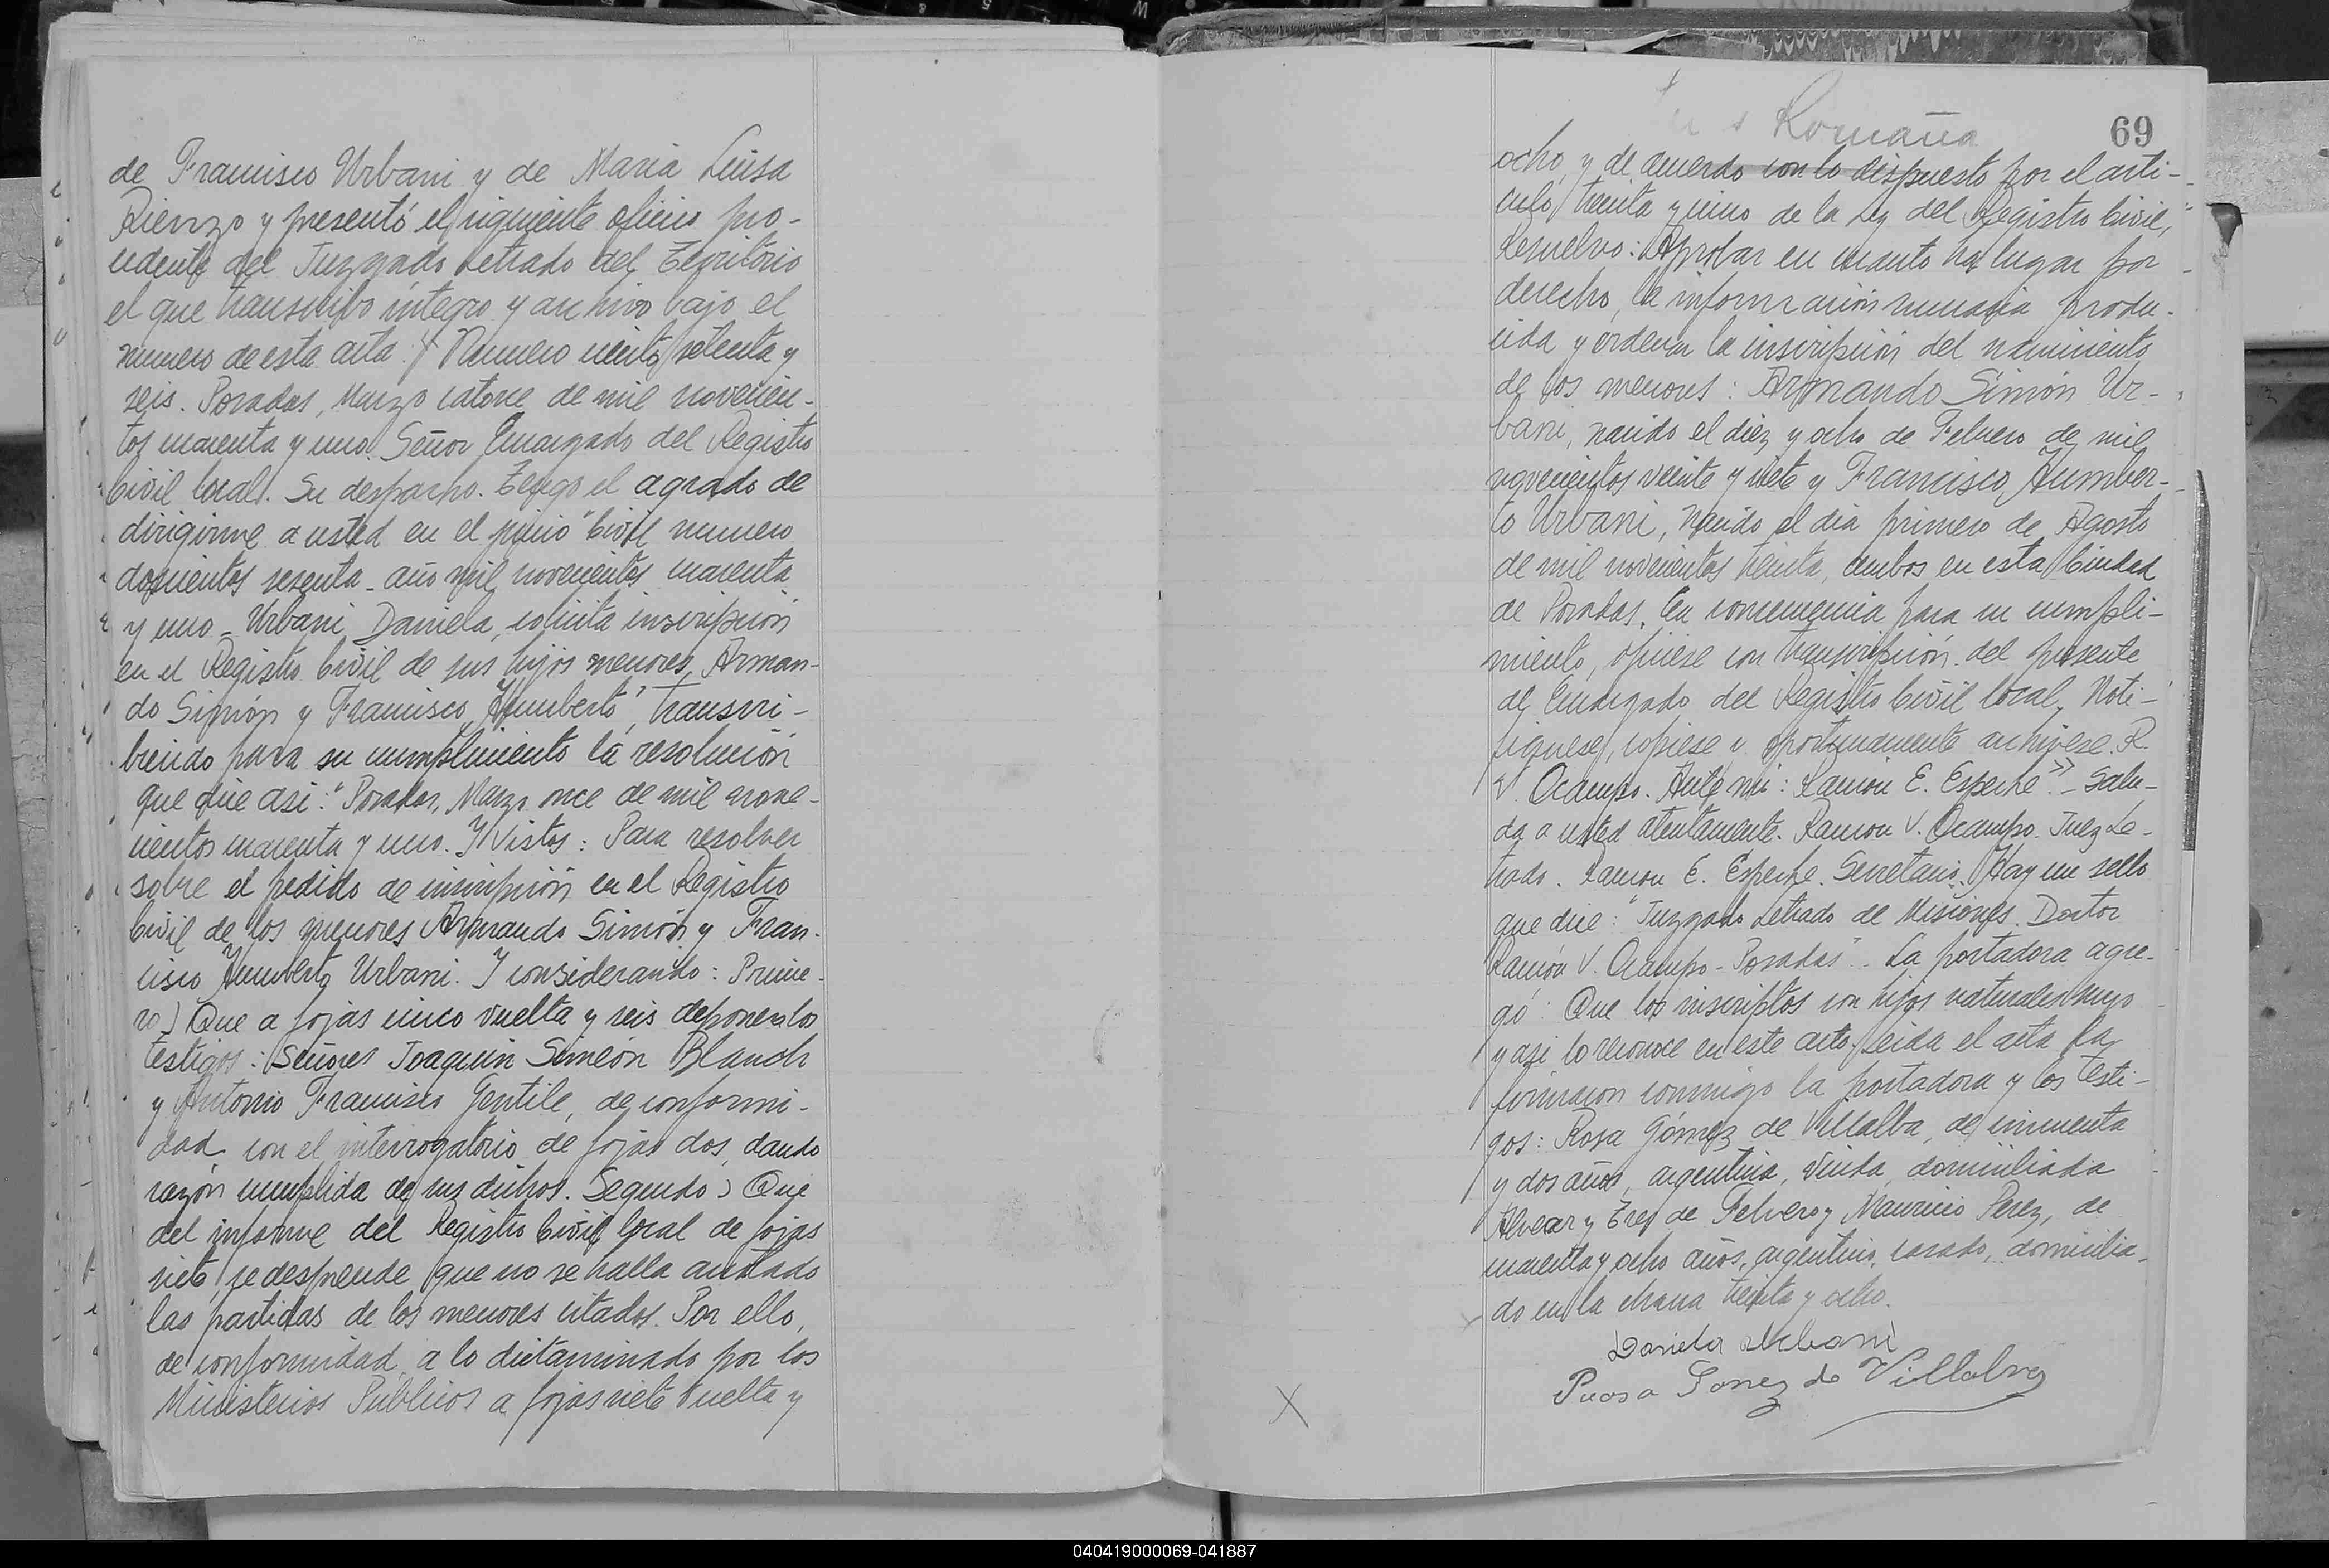 de Francisco Urbani y de Maria Luisa
Rienzo y presentó el siguiente oficio pro-
cedente del Juzgado Letrado del Territorio
el que transcribo integro y archivo bajo el
numero de esta acta: Numero ciento setenta y
seis. Posadas, Marzo catorce de mil novecien-
tos cuarenta y uno. Señor Encargado del Registro
Civil local. Su despacho. Tengo el agrado de
dirigirme a usted en el juicio "Civil numero
doscientos sesenta - año mil novecientos cuarenta
y uno - Urbani Daniela, solicita inscripción
en el Registro Civil de sus hijos menores, Arman-
do Simón y Francisco Humberto", transcri-
biendo para su cumplimiento la resolución
que dice asi: "Posadas, Marzo once de mil nove-
cientos cuarenta y uno. Y Vistos: Para resolver
sobre el pedido de inscripción en el Registro
Civil de los menores Armando Simón y Fran-
cisco Humberto Urbani. Y considerando: Prime-
ro) Que a fojas cinco vuelta y seis deponen los
testigos: Señores Joaquin Simeón Blanch
y Antonio Francisco Gentile, de conformi-
dad con el interrogatorio de fojas dos, dando
razón cumplida de sus dichos. Segundo) Que
del informe del Registro Civil local de fojas
siete, se desprende que no se halla anotado
las partidas de los menores citados. Por ello,
de conformidad a lo dictaminado por los
Ministerios Públicos a fojas siete vuelta y
Romaña
69
ocho, y de acuerdo con lo dispuesto por el arti-
culo treinta y uno de la Ley del Registro Civil,
Resuelvo: Aprobar en cuanto ha lugar por
derecho, la información sumaria produ-
cida y ordenar la inscripción del nacimiento
de los menores: Armando Simón Ur-
bani, nacido el diez y ocho de Febrero de mil
novecientos veinte y siete y Francisco Humber-
to Urbani, nacido el dia primero de Agosto
de mil novecientos treinta, ambos en esta Ciudad
de Posadas. En consecuencia para su cumpli-
miento, oficiese con transcripción del presente
al Encargado del Registro Civil local. Noti-
fiquese, copiese y oportunamente archivese. R.
V. Ocampo. Ante mi: Ramón E. Espeche" - Salu-
da a usted atentamente. Ramon V. Ocampo. Juez Le-
trado. Ramon E. Espeche. Secretario. Hay un sello
que dice: "Juzgado Letrado de Misiones. Doctor
Ramón V. Ocampo - Posadas" - La portadora agre-
gó: Que los inscriptos son hijos naturales suyos
y asi lo reconoce en este acto. Leida el acta la
firmaron conmigo la portadora y los testi-
gos: Rosa Gómez de Villalba, de cincuenta
y dos años, argentina, viuda, domiciliada
Alvear y Tres de Febrero y Mauricio Perez, de
cuarenta y ocho años, argentino, casado, domicilia-
do en la chacra treinta y ocho.
Daniela Urbani
Gomez de Villalba
040419000069-041887